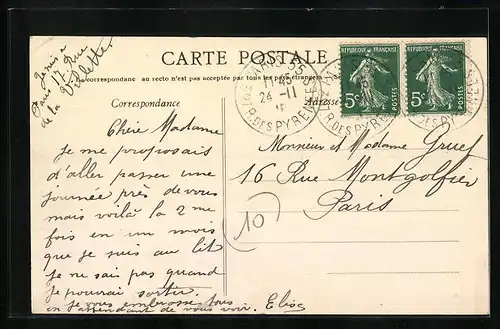 CARTE POSTALE
La correspondance au recto n'est pas acceptée par tous les pays étrangers
Correspondance
Adresse
Chère Madame
Je me proposais
d'aller passer une
journée près de vous
mais voilà la 2 me
fois en un mois
que je suis au lit
Je ne sais pas quand
je pourrai sortir.
je vous embrosse tous
en attendant de vous voir. Elisa
Paris 17 Rue
de la Villette
24 - 11
R. DES PYRENEES
REPUBLIQUE FRANÇAISE
5c
POSTES
REPUBLIQUE FRANÇAISE
5c
POSTES
Monsieur et Madame Gruet
16 Rue Montgolfier
Paris
10